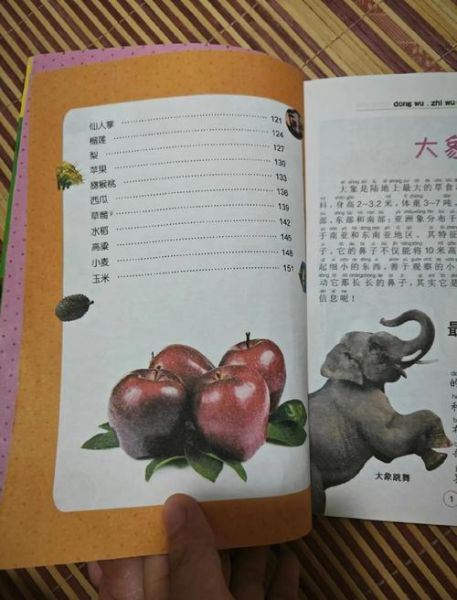 仙人掌 121
榴莲 124
梨 127
苹果 130
猕猴桃 133
西瓜 136
草莓 139
水稻 142
高粱 145
小麦 148
玉米 151
dong wu . zhi wu
大象
大象是陆地上最大的草食
科，身高2~3.2米，体重3~7吨，
部、东部和南部；亚洲象分布于
于南亚和东南亚地区。其特征
子，它的鼻子不仅能将10米高
起细小的东西，善于观察的小
动它那长长的鼻子，其实它是
信息呢！
最
的
大象跳舞
1